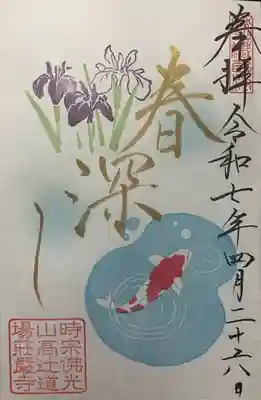 奉拝
令和七年四月二十六日
春深し
時宗佛光
山高辻道
場荘厳寺